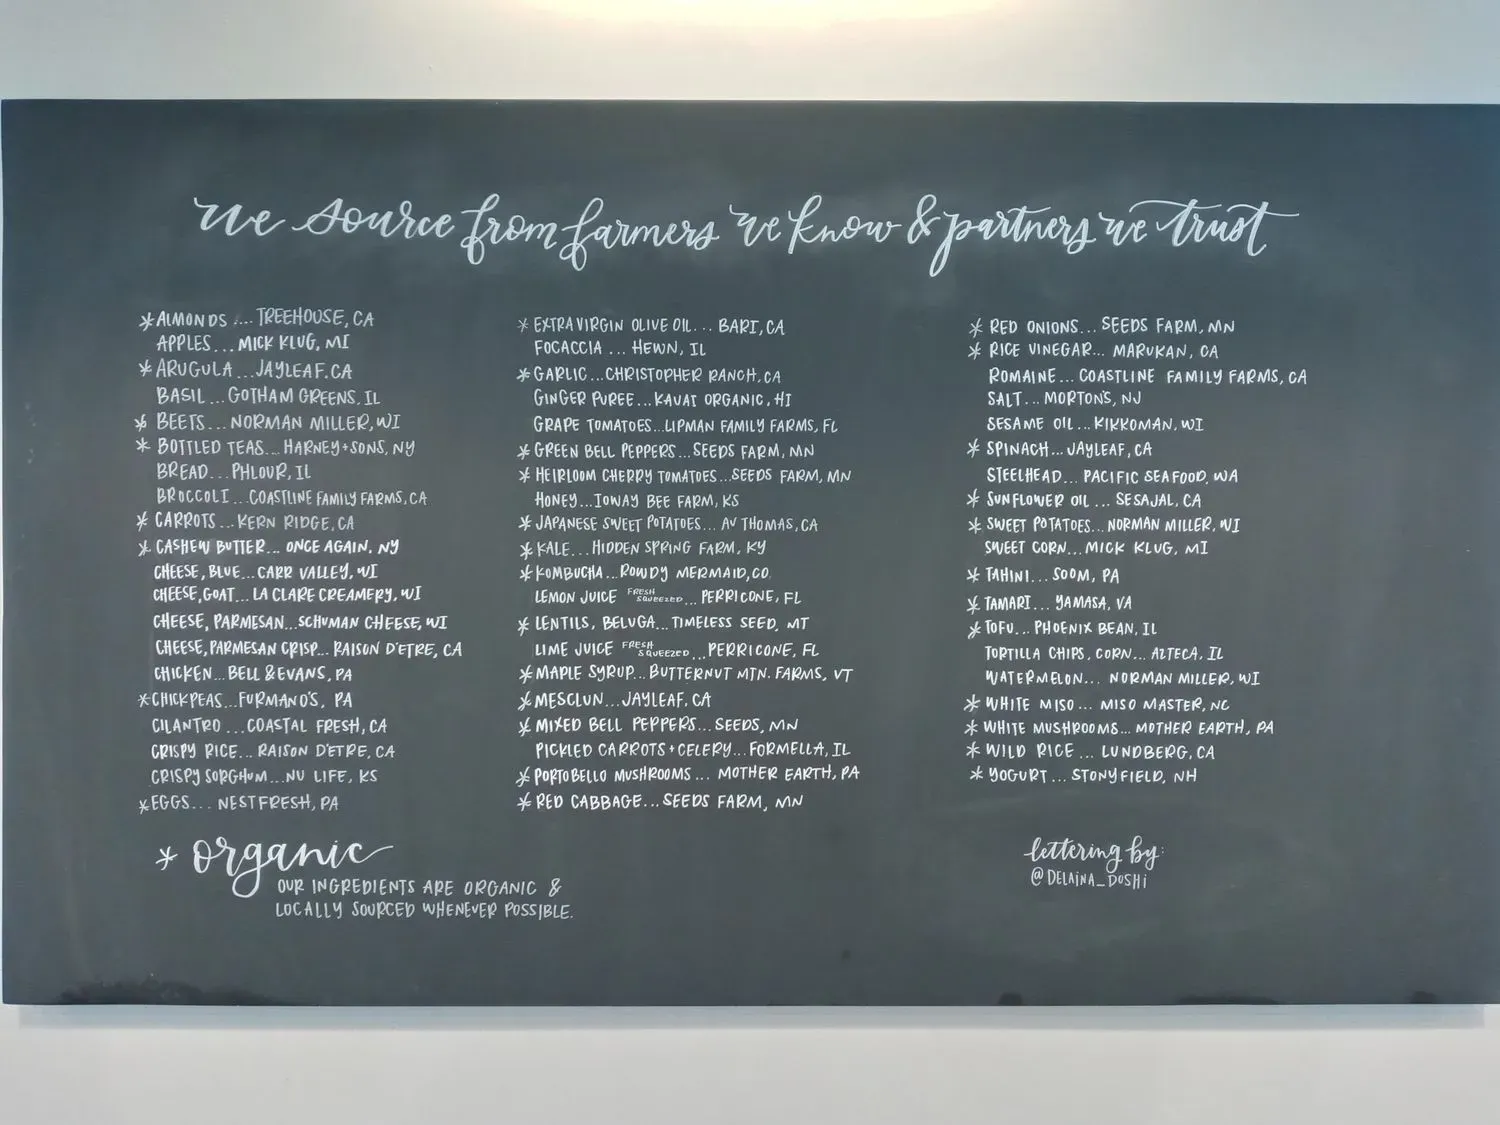 we source from farmers we know & partners we trust
*ALMONDS .... TREEHOUSE, CA
APPLES... MICK KLUG, MI
*ARUGULA... JAYLEAF. CA
BASIL ... GOTHAM GREENS, IL
* BEETS... NORMAN MILLER, WI
* BOTTLED TEAS... HARNEY+SONS, NY
BREAD... PHLOUR, IL
BROCCOLI ... COASTLINE FAMILY FARMS, CA
* CARROTS... KERN RIDGE, CA
* CASHEW BUTTER... ONCE AGAIN, NY
CHEESE, BLUE... CARR VALLEY, WI
CHEESE, GOAT... LA CLARE CREAMERY, WI
CHEESE, PARMESAN... SCHUMAN CHEESE, WI
CHEESE, PARMESAN CRISP... RAISON D'ETRE, CA
CHICKEN... BELL & EVANS, PA
*CHICKPEAS... FURMANO'S, PA
CILANTRO ... COASTAL FRESH, CA
CRISPY RICE... RAISON D'ETRE, CA
CRISPY SORGHUM... NU LIFE, KS
*EGGS... NESTFRESH, PA
* EXTRA VIRGIN OLIVE OIL... BARI, CA
FOCACCIA ... HEWN, IL
* GARLIC... CHRISTOPHER RANCH, CA
GINGER PUREE... KAUAI ORGANIC, HI
GRAPE TOMATOES... LIPMAN FAMILY FARMS, FL
* GREEN BELL PEPPERS... SEEDS FARM, MN
* HEIRLOOM CHERRY TOMATOES... SEEDS FARM, MN
HONEY... IOWAY BEE FARM, KS
* JAPANESE SWEET POTATOES... AV THOMAS, CA
* KALE... HIDDEN SPRING FARM, KY
* KOMBUCHA... ROWDY MERMAID, CO
LEMON JUICE FRESH SQUEEZED... PERRICONE, FL
* LENTILS, BELUGA... TIMELESS SEED, MT
LIME JUICE FRESH SQUEEZED... PERRICONE, FL
* MAPLE SYRUP... BUTTERNUT MTN. FARMS, VT
* MESCLUN... JAYLEAF, CA
* MIXED BELL PEPPERS... SEEDS, MN
PICKLED CARROTS + CELERY... FORMELLA, IL
* PORTOBELLO MUSHROOMS... MOTHER EARTH, PA
* RED CABBAGE... SEEDS FARM, MN
* RED ONIONS... SEEDS FARM, MN
* RICE VINEGAR... MARUKAN, CA
ROMAINE... COASTLINE FAMILY FARMS, CA
SALT... MORTON'S, NJ
SESAME OIL... KIKKOMAN, WI
* SPINACH... JAYLEAF, CA
STEELHEAD... PACIFIC SEAFOOD, WA
* SUNFLOWER OIL ... SESAJAL, CA
* SWEET POTATOES... NORMAN MILLER, WI
SWEET CORN... MICK KLUG, MI
* TAHINI... SOOM, PA
* TAMARI... YAMASA, VA
* TOFU... PHOENIX BEAN, IL
TORTILLA CHIPS, CORN... AZTECA, IL
WATERMELON... NORMAN MILLER, WI
* WHITE MISO... MISO MASTER, NC
* WHITE MUSHROOMS... MOTHER EARTH, PA
* WILD RICE ... LUNDBERG, CA
* YOGURT... STONYFIELD, NH
* organic
OUR INGREDIENTS ARE ORGANIC &
LOCALLY SOURCED WHENEVER POSSIBLE.
lettering by:
@DELAINA_DOSHI